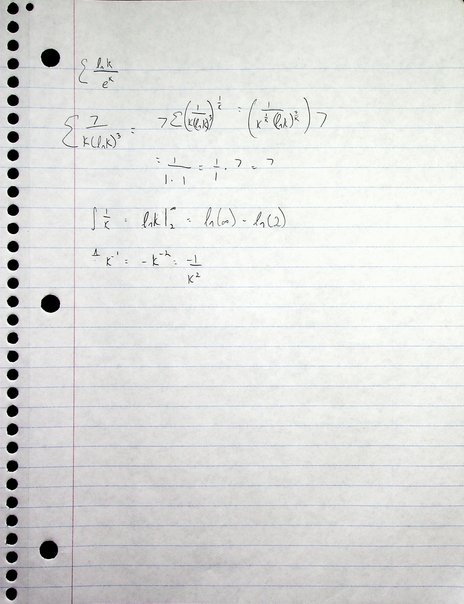 Σ ln k / e^k
Σ 7 / k(ln k)^3 = 7 Σ (1 / k(ln k)^3)^(1/k) = (1 / k^(1/k) (ln k)^(3/k)) 7
= 1 / 1 · 1 = 1/1 · 7 = 7
∫ 1/k = ln k |_2^∞ = ln(∞) - ln(2)
k^-1 = -k^-2 = -1 / k^2